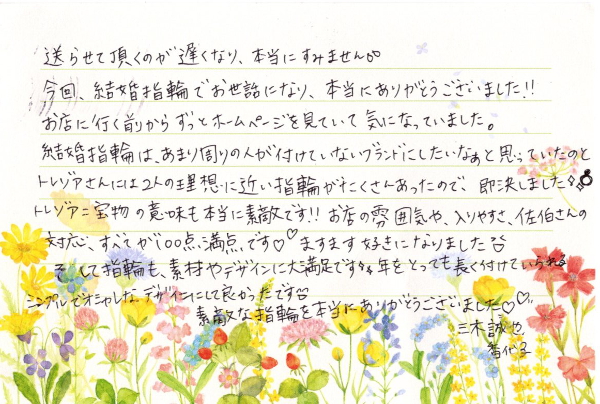 送らせて頂くのが遅くなり、本当にすみません。
今回、結婚指輪でお世話になり、本当にありがとうございました!!
お店に行く前からずっとホームページを見ていて気になっていました。
結婚指輪は、あまり周りの人が付けていないブランドにしたいなぁと思っていたのと
トレゾアさんには2人の理想に近い指輪がたくさんあったので、即決しました
トレゾア=宝物の意味も本当に素敵です!! お店の雰囲気や、入りやすさ、佐伯さんの
対応、すべてが100点満点です♡♡ ますます好きになりました
そして指輪も、素材やデザインに大満足です 年をとっても長く付けていられる
シンプルでオシャレなデザインにして良かったです
素敵な指輪を本当にありがとうございました♡♡
三木誠也
香代子